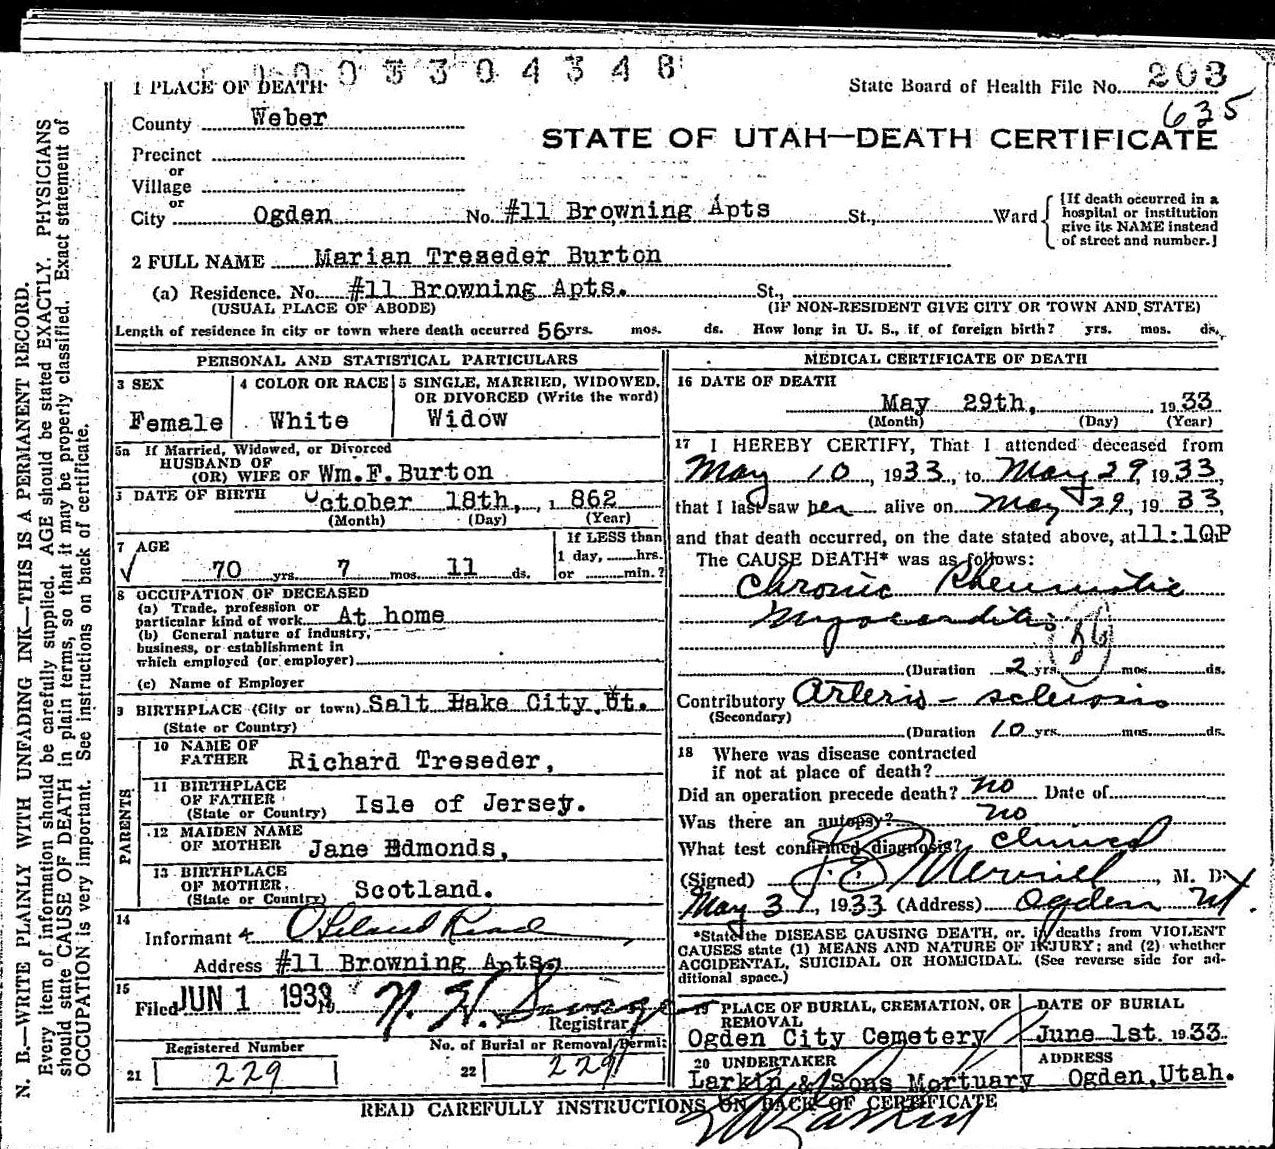 0003304348
1 PLACE OF DEATH
State Board of Health File No. 203
635
County Weber
STATE OF UTAH—DEATH CERTIFICATE
Precinct
or
Village
or
City Ogden No. #11 Browning Apts St., Ward
[If death occurred in a
hospital or institution
give its NAME instead
of street and number.]
2 FULL NAME Marian Treseder Burton
(a) Residence. No. #11 Browning Apts. St.,
(USUAL PLACE OF ABODE) (IF NON-RESIDENT GIVE CITY OR TOWN AND STATE)
Length of residence in city or town where death occurred 56 yrs. mos. ds. How long in U. S., if of foreign birth? yrs. mos. ds.
PERSONAL AND STATISTICAL PARTICULARS
3 SEX
Female
4 COLOR OR RACE
White
5 SINGLE, MARRIED, WIDOWED,
OR DIVORCED (Write the word)
Widow
5a If Married, Widowed, or Divorced
HUSBAND OF
(OR) WIFE OF Wm.F.Burton
DATE OF BIRTH October 18th, 1862
(Month) (Day) (Year)
7 AGE
70 yrs. 7 mos. 11 ds.
If LESS than
1 day, hrs.
or min.?
8 OCCUPATION OF DECEASED
(a) Trade, profession or
particular kind of work At home
(b) General nature of industry,
business, or establishment in
which employed (or employer)
(c) Name of Employer
9 BIRTHPLACE (City or town) Salt Lake City, Ut.
(State or Country)
PARENTS
10 NAME OF
FATHER Richard Treseder,
11 BIRTHPLACE
OF FATHER
(State or Country) Isle of Jersey.
12 MAIDEN NAME
OF MOTHER Jane Edmonds,
13 BIRTHPLACE
OF MOTHER
(State or Country) Scotland.
14
Informant
Address #11 Browning Apts.
15
Filed JUN 1 1933
Registrar
Registered Number
21 229
No. of Burial or Removal Permit
22 229
MEDICAL CERTIFICATE OF DEATH
16 DATE OF DEATH
May 29th, 1933
(Month) (Day) (Year)
17 I HEREBY CERTIFY, That I attended deceased from
May 10, 1933, to May 29, 1933,
that I last saw her alive on May 29, 1933,
and that death occurred, on the date stated above, at 11:10P
The CAUSE DEATH* was as follows:
Chronic Rheumatic
Myocarditis
(Duration 2 yrs. mos. ds.
Contributory Arterio-sclerosis
(Secondary)
(Duration 10 yrs. mos. ds.
18 Where was disease contracted
if not at place of death?
Did an operation precede death? no Date of
Was there an autopsy? no
What test confirmed diagnosis? clinical
(Signed) Merrill, M. D.
May 31, 1933 (Address) Ogden Ut.
*State the DISEASE CAUSING DEATH, or, in deaths from VIOLENT
CAUSES state (1) MEANS AND NATURE OF INJURY; and (2) whether
ACCIDENTAL, SUICIDAL OR HOMICIDAL. (See reverse side for ad-
ditional space.)
19 PLACE OF BURIAL, CREMATION, OR
REMOVAL
Ogden City Cemetery
DATE OF BURIAL
June 1st. 1933.
20 UNDERTAKER
Larkin & Sons Mortuary
ADDRESS
Ogden, Utah.
READ CAREFULLY INSTRUCTIONS ON BACK OF CERTIFICATE
N. B.—WRITE PLAINLY WITH UNFADING INK—THIS IS A PERMANENT RECORD.
Every item of information should be carefully supplied. AGE should be stated EXACTLY. PHYSICIANS
should state CAUSE OF DEATH in plain terms, so that it may be properly classified. Exact statement of
OCCUPATION is very important. See instructions on back of certificate.